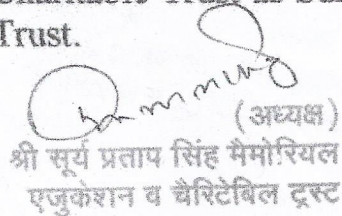 Trust.
(अध्यक्ष)
श्री सूर्य प्रताप सिंह मैमोरियल
एजुकेशन व चैरिटेबिल ट्रस्ट